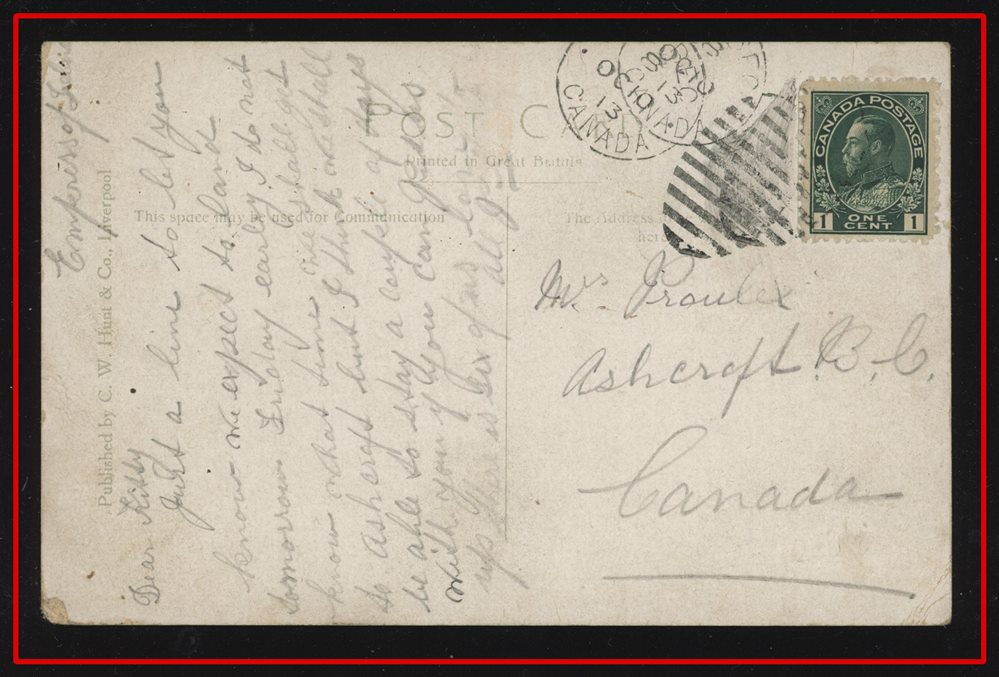 POST CARD
Printed in Great Britain
This space may be used for Communication
The Address
here
Published by C. W. Hunt & Co., Liverpool
CANADA
13
CANADA POSTAGE
1 ONE CENT 1
Empress of
Dear Kitty
Just a line to let you
know we expect to land
tomorrow Friday early I do not
know what time we shall get
to Ashcroft but I think we shall
be able to stay a couple of days
with you if you can
up there is six of us
all
Mrs Proulx
Ashcroft B. C.
Canada